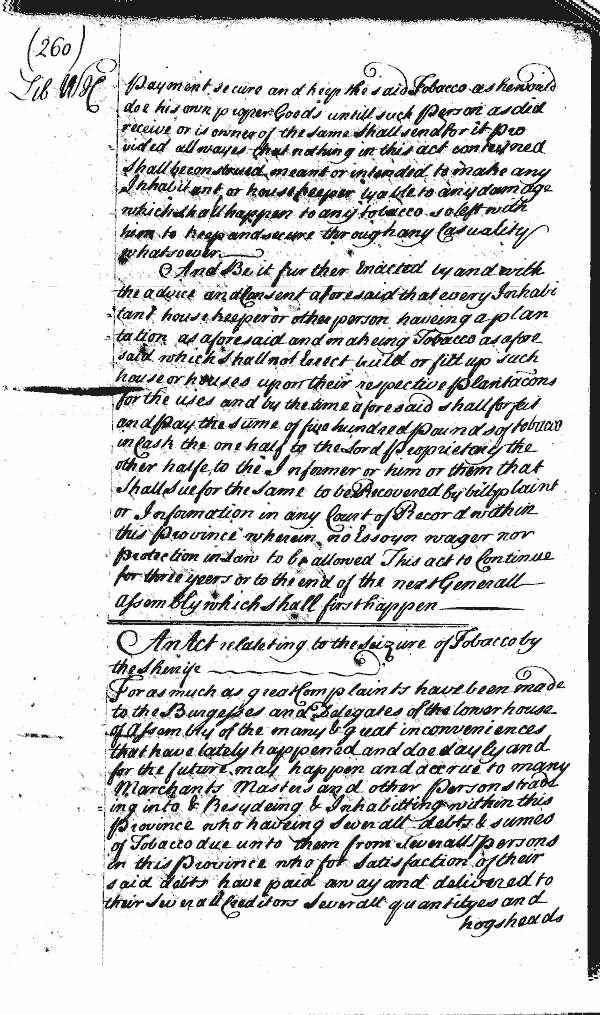 (260)
Lib WH
Payment secure and keep the said Tobacco as he would
doe his own proper Goods untill such Person as did
receive or is owner of the same shall send for it Pro
vided all wayes that nothing in this act conteined
shall be construed meant or intended to make any
Inhabitant or housekeeper lyable to any damage
which shall happen to any tobacco so left with
him to keep and secure through any Casuality
whatsoever
And Be it further Enacted by and with
the advice and Consent aforesaid that every Inhabi
tant housekeeper or other person haveing a plan
tation as aforesaid and makeing Tobacco as afore
said which shall not Erect build or fitt up such
house or houses upon their respective Plantacons
for the uses and by the time aforesaid shall forfeit
and pay the sume of five hundred Pounds of tobacco
in Cash the one half to the Lord Proprietary the
other halfe to the Informer or him or them that
shall sue for the same to be Recovered by bill plaint
or Information in any Court of Record within
this Province wherein no Essoyn wager nor
Protection in Law to be allowed This act to Continue
for three years or to the end of the next Generall
Assembly which shall first happen
An Act relateing to the Seizure of Tobacco by
the Sherife
Forasmuch as great Complaints have been made
to the Burgesses and Delegates of the lower house
of Assembly of the many & great inconveniences
that have lately happened and doe dayly and
for the future may happen and accrue to many
Merchants Masters and other Persons trade
ing into & Resydeing & Inhabitting within this
Province who haveing severall debts & sumes
of Tobacco due unto them from Severall Persons
in this Province who for satisfaction of their
said debts have paid away and delivered to
their Severall Creditors Severall quantityes and
hogsheads